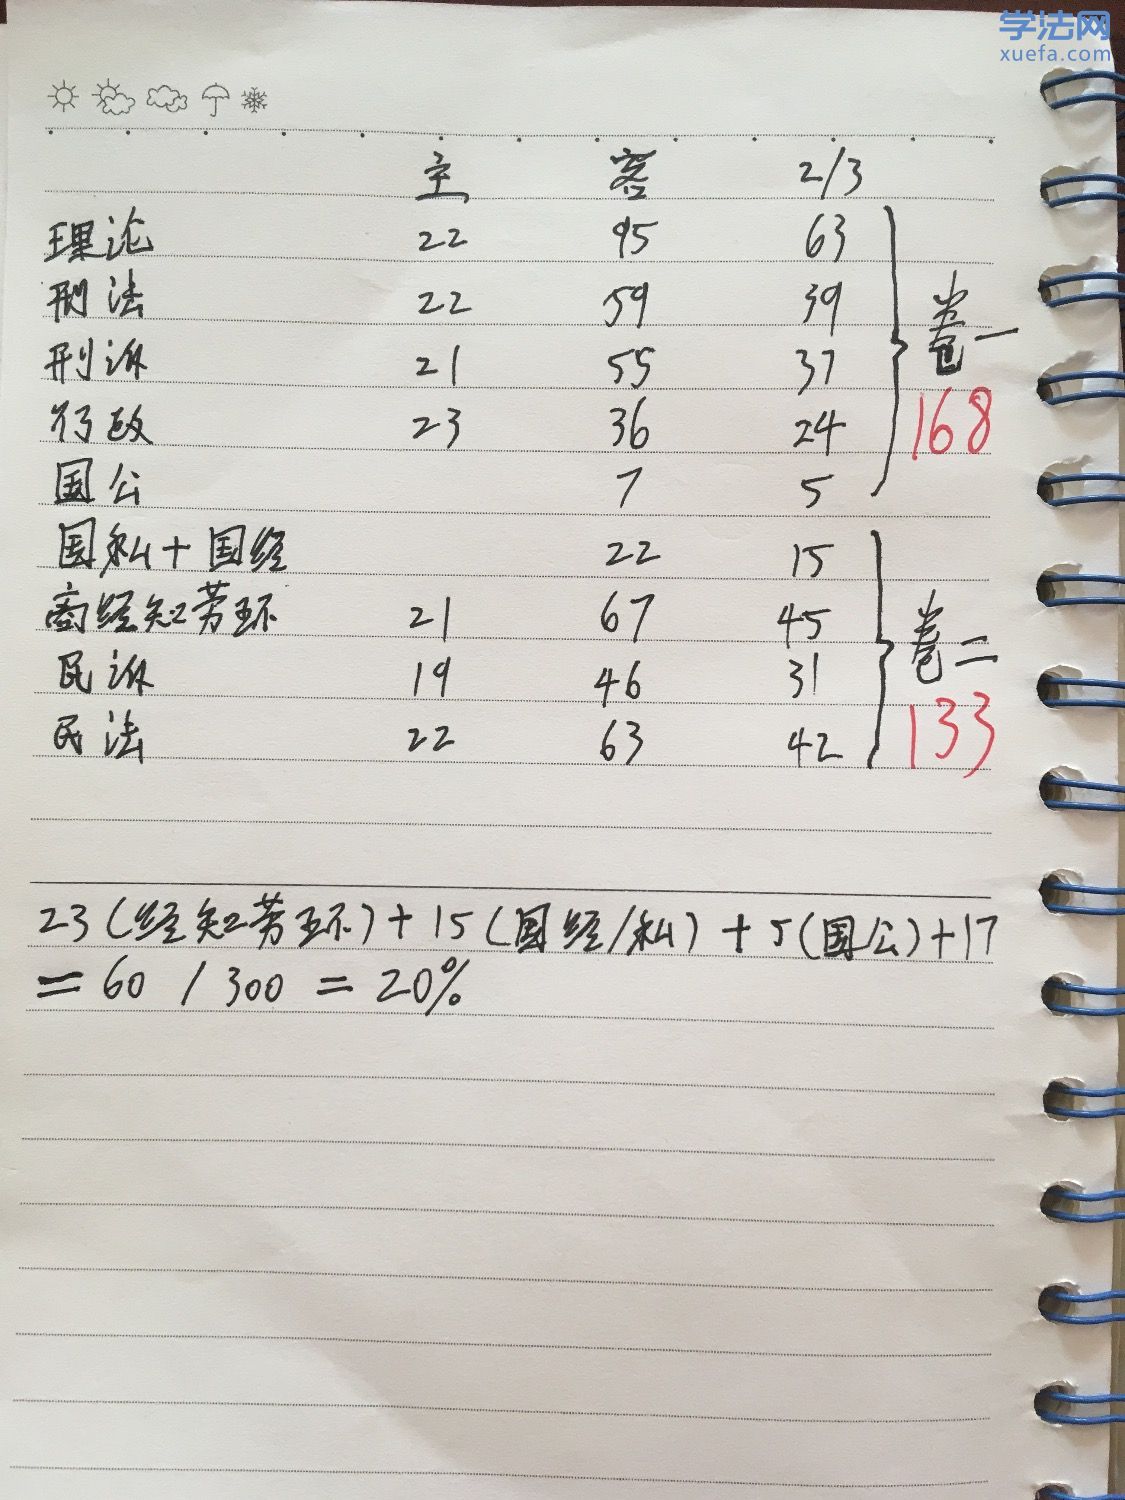 学法网
xuefa.com
主 客 2/3
理论 22 95 63
刑法 22 59 39
卷一
刑诉 21 55 37
行政 23 36 24
168
国公 7 5
国私+国经 22 15
商经知劳环 21 67 45
卷二
民诉 19 46 31
民法 22 63 42
133
23(经知劳环)+15(国经/私)+5(国公)+17
=60/300=20%